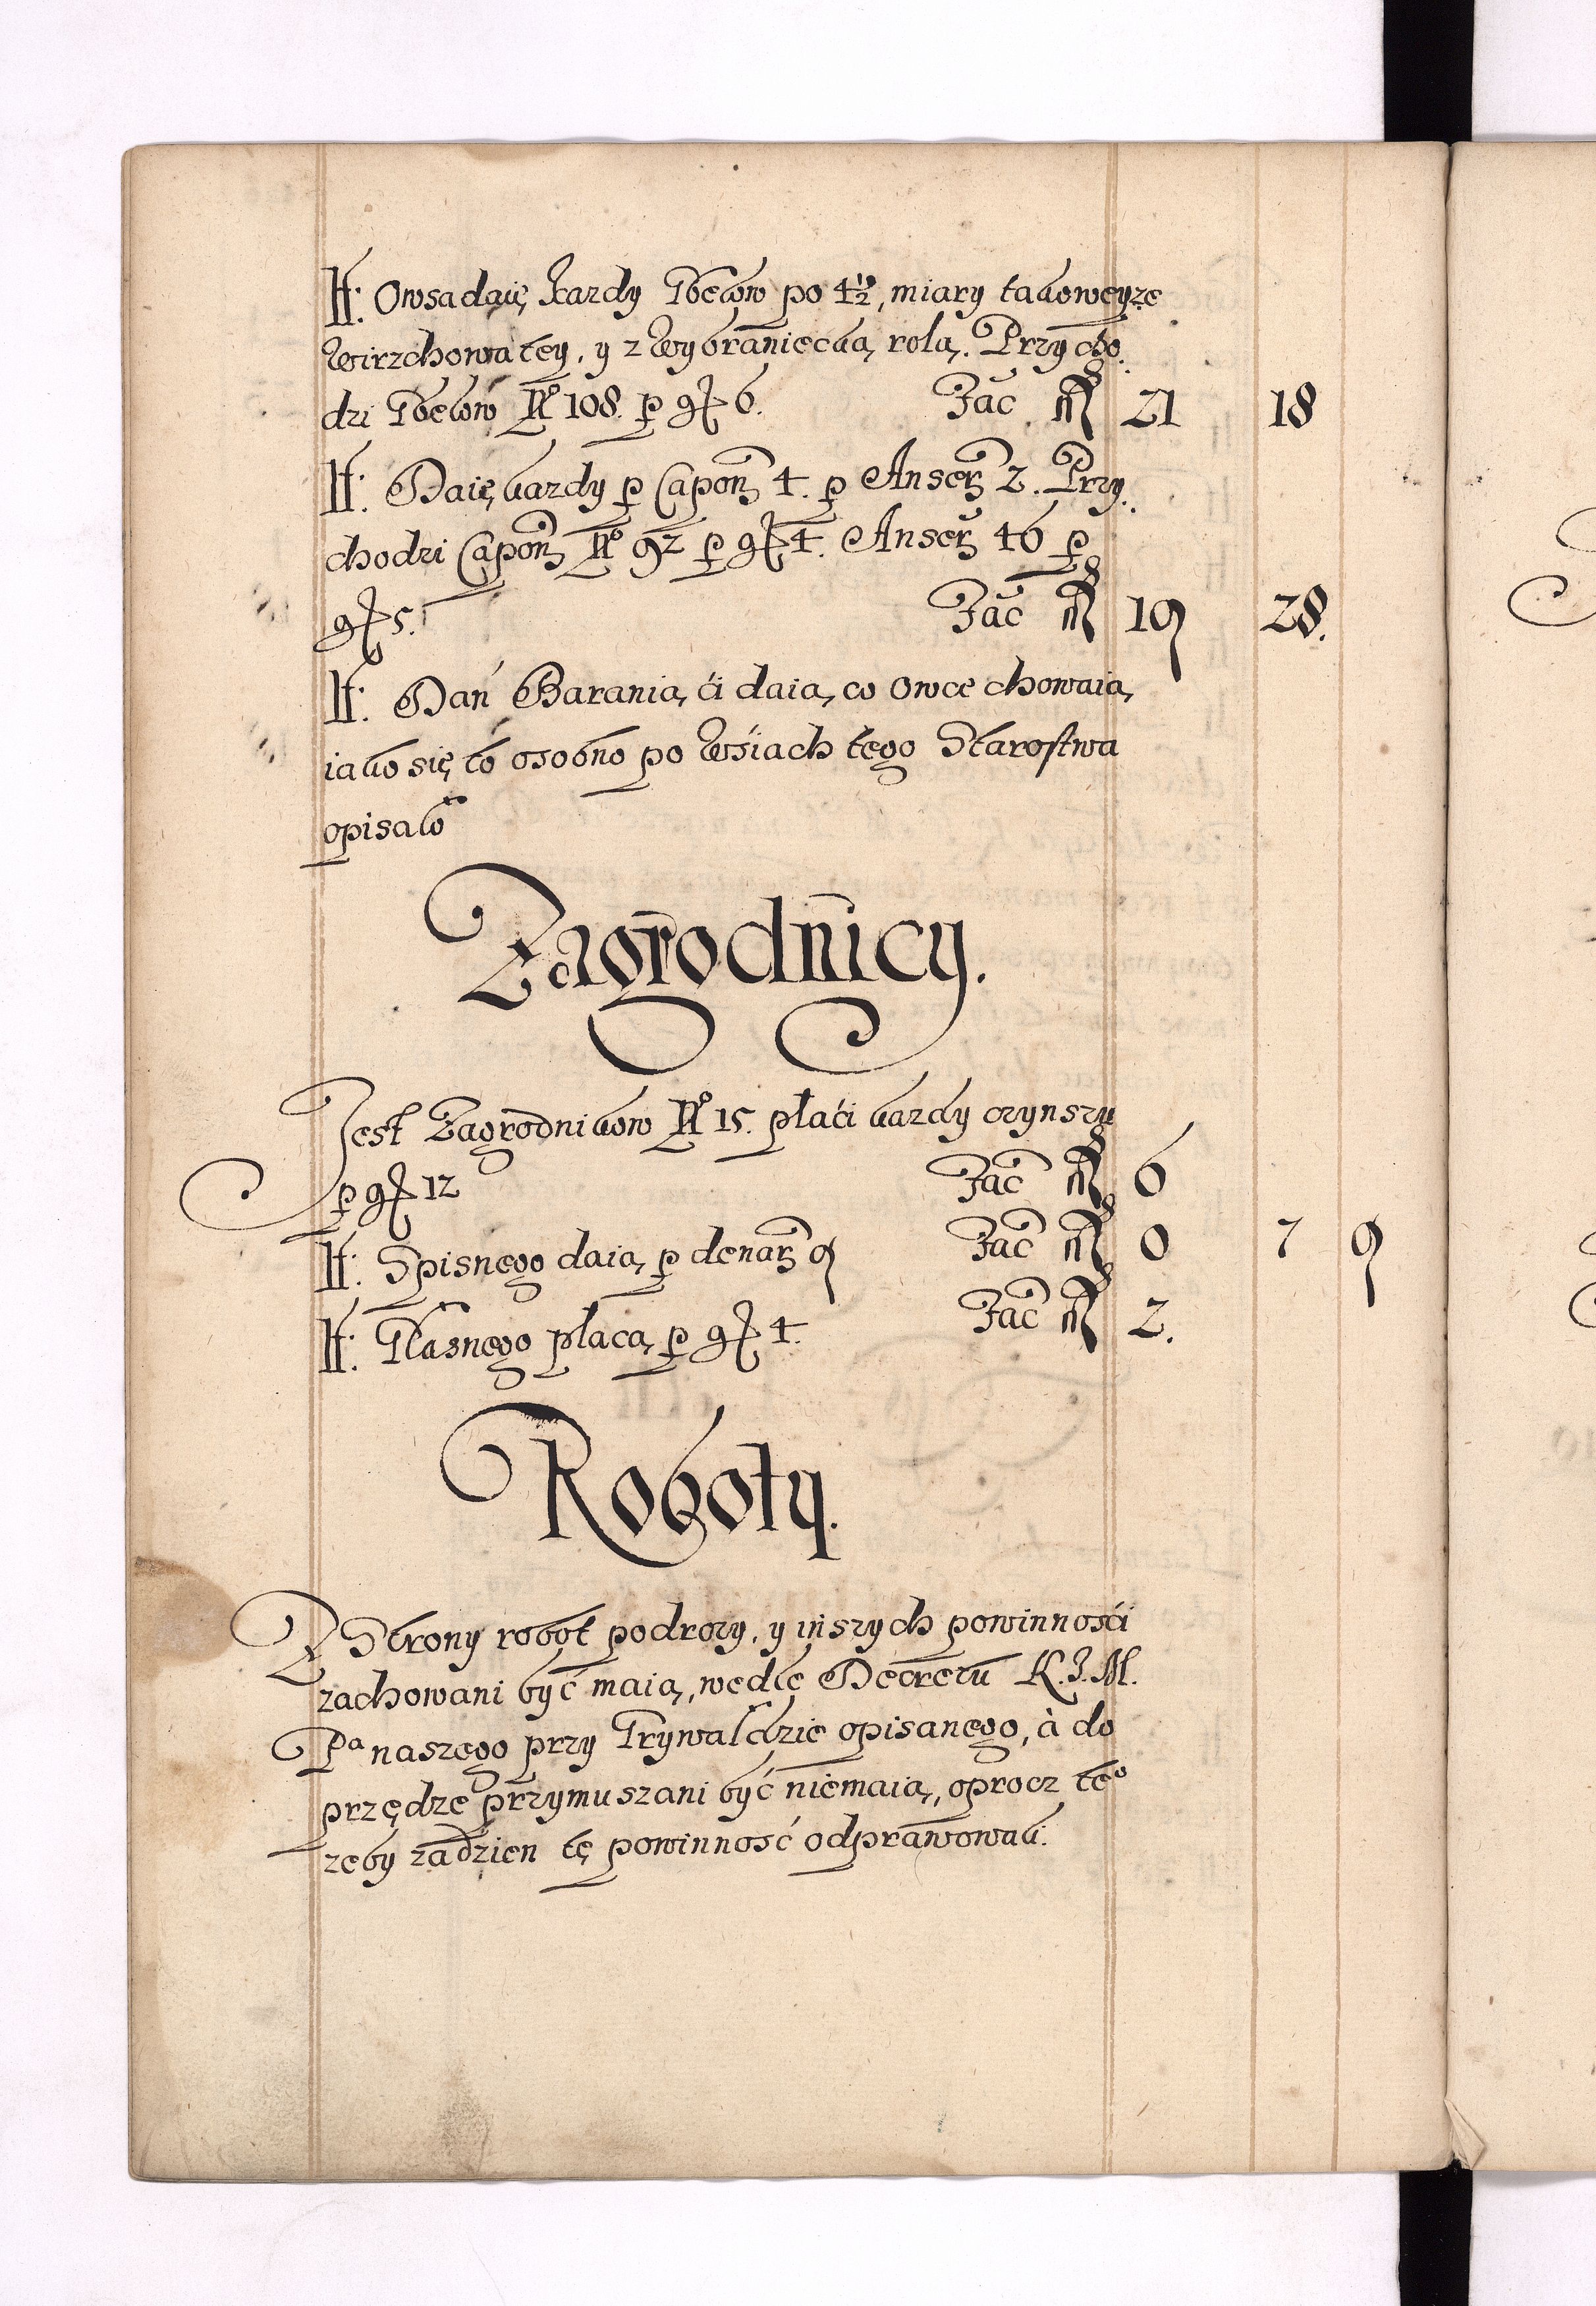 It: Owsa daię kazdy Cwelow po 4½, miary takoweyze
Wirzchowatey, y z Wybraniecką rolą. Przycho
dzi No 108. p gr 6. Fac mr 21 18
It: Daię kazdy p Capon 4. p Anser 2. Przy
chodzi Capon No 92 p gr 4. Anser 46 p
gr 5. Fac mr 19 28.
It: Dań Barania ći daią, co owce chowaią,
iako się to osobno po Wsiach tego Starostwa
opisało
Zagrodnicy.
Jest Zagrodnikow No 15. płaći kazdy czynszu
p gr 12 Fac mr 6
It: Spisnego daią p denar 9 Fac mr 0 7 9
It: płacą p gr 4. Fac mr 2.
Roboty.
Z Strony robot podrozy, y inszych powinnośći
zachowani być maią, wedle Decretu K. J. M.
Pa naszego przy Grywałdzie opisanego, à do
przędze przymuszani być niemaią, oprocz teo
zeby zadzien tę powinność odprawowali.